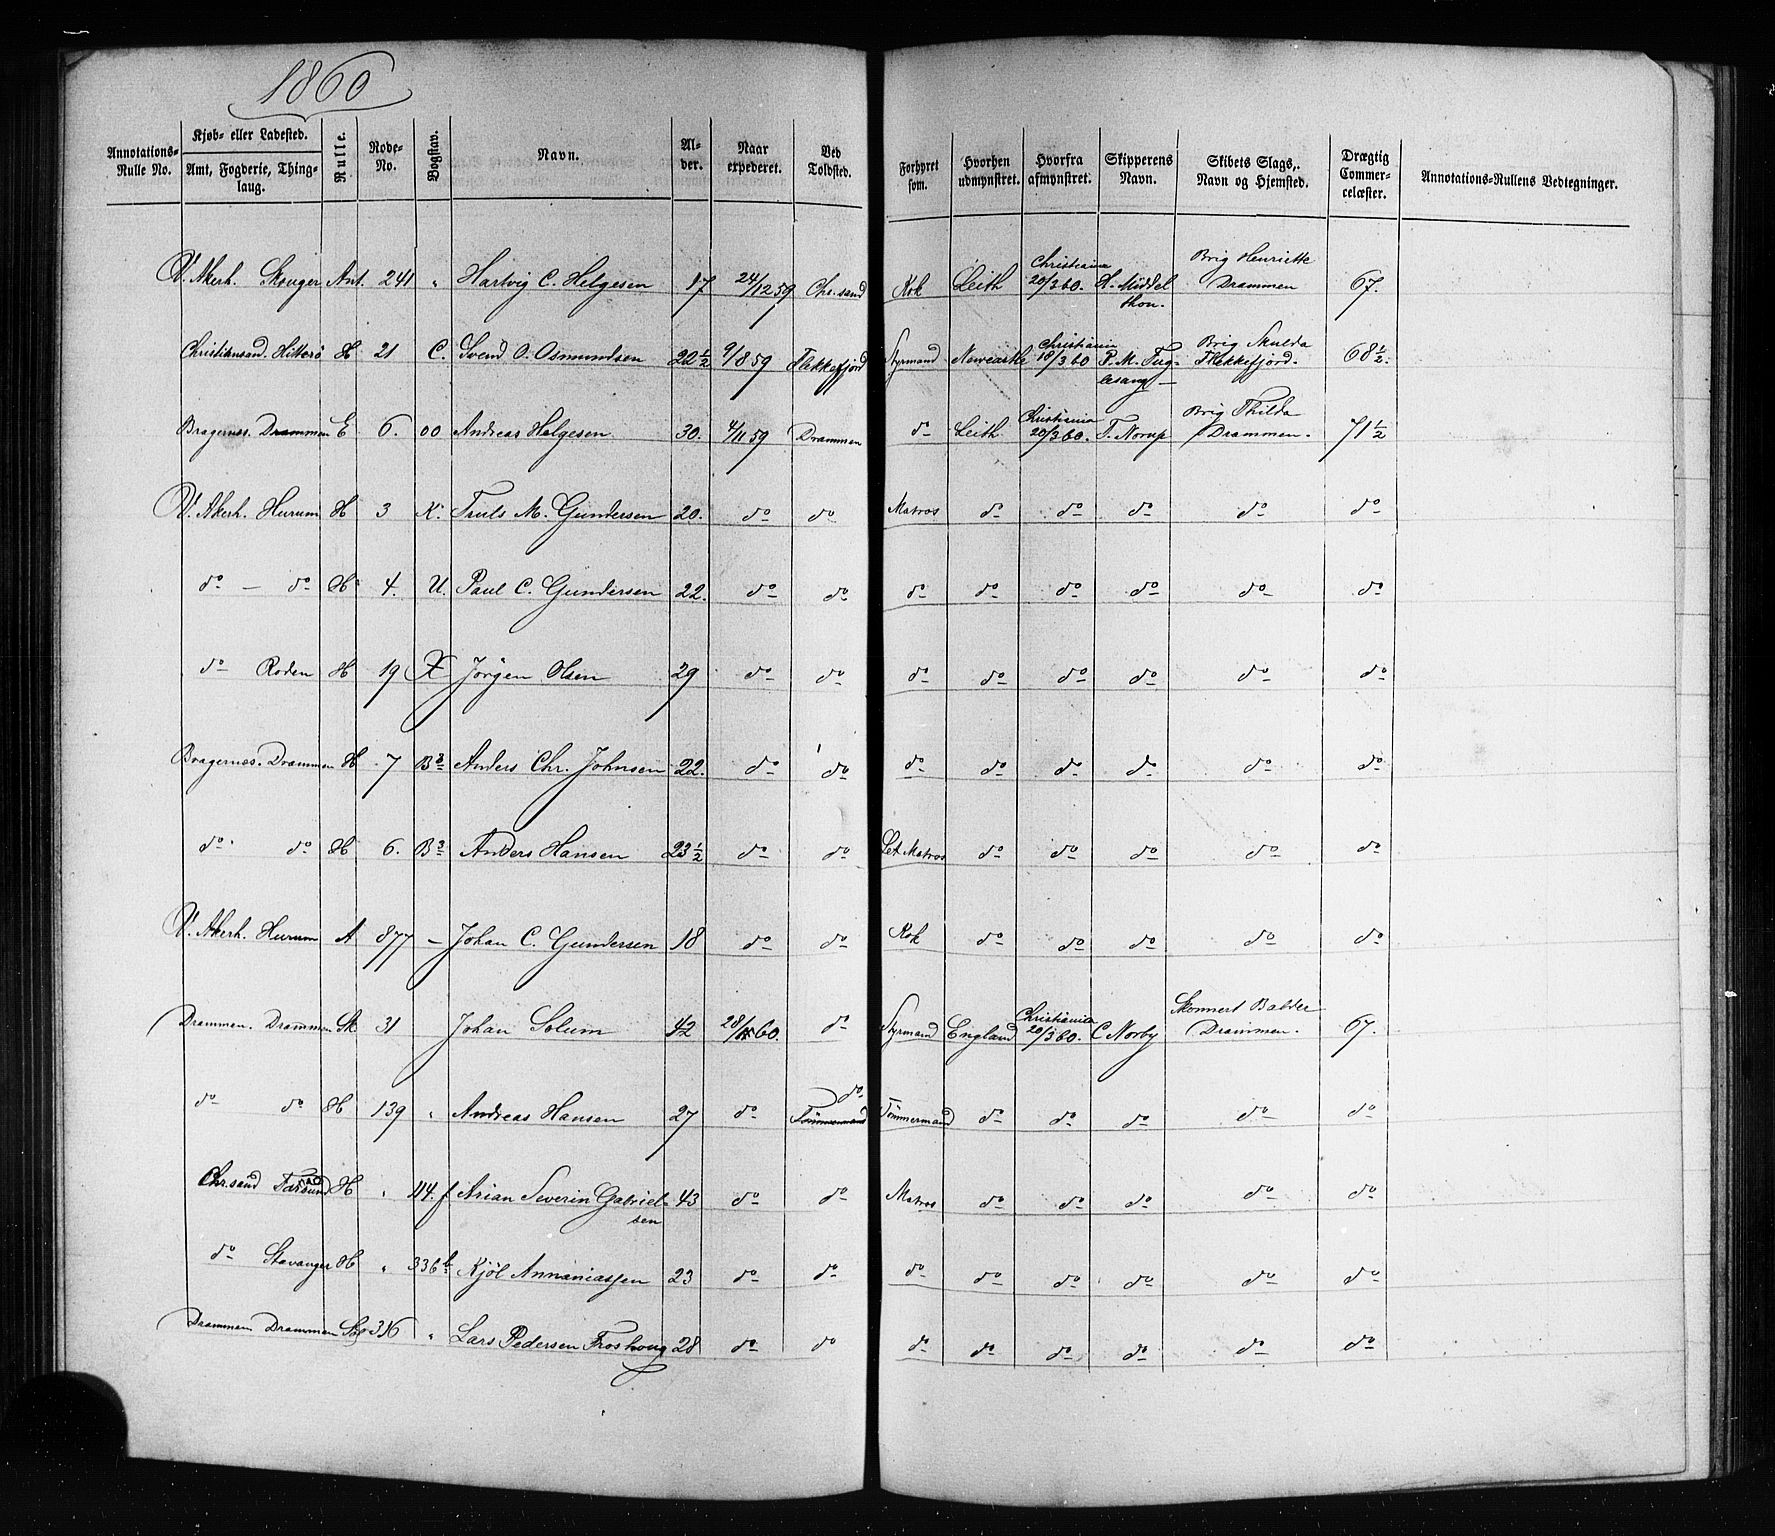 1860
Annotations-Rulle No. Kjøb- eller Ladested. Amt, Fogderie, Thinglaug. Rulle. Rode-No. Bogstav. Navn. Alder. Naar expederet. Ved Toldsted. Forhyret som. Hvorhen udmynstret. Hvorfra afmynstret. Skipperens Navn. Skibets Slags, Navn og Hjemsted. Drægtig Commercelæster. Annotations-Rullens Vedtegninger.
V. Akerh. Skouger Ant. 241 " Hartvig C. Helgesen 17 24/12 59 Chr.sand Kok Leith Christiania 20/3 60. H. Middelthon. Brig Henriette Drammen 67.
Christiansand. Hitterö H 21 C. Svend O. Osmundsen 22½ 9/8 59 Flekkefjord Styrmand Newcastle Christiania 18/3 60 P. M. Fuglesang Brig Skulda Flekkefjord. 68½.
Bragernes. Drammen E 6. oo Andreas Helgesen 30. 4/11 59 Drammen do Leith Christiania 20/3 60. T. Norup Brig Thilda Drammen. 71½
V. Akerh. Hurum H 3 K. Truls M. Gundersen 20. do do Matros do do do do do
do — do H 4. U. Paul C. Gundersen 22. do do do do do do do do
do Roden H 19 Jörgen Olsen 29 do do do do do do do do
Bragernes. Drammen H 7 B3 Anders Chr. Johnsen 22. do do do do do do do do
do do H 6. B3 Anders Hansen 23½ do do Let Matros do do do do do
V. Akerh. Hurum A 877 — Johan C. Gundersen 18 do do Kok do do do do do
Drammen. Drammen Sk 31 Johan Solum 42 28/ 60. do Styrmand England Christiania 20/3 60. C Norby Skonnert Balder Drammen. 67.
do do H 139 " Andreas Hansen 27 do do Tömmermand Tömmermand do do do do do
Chr.sand Farsund H " 114. f Arian Severin Gabrielsen 43 do do Matros do do do do do
do Stavanger H " 336 b Kjöl Annaniassen 23 do do do do do do do do
Drammen Drammen 316 " Lars Pedersen Froshoug 28 do do do do do do do do